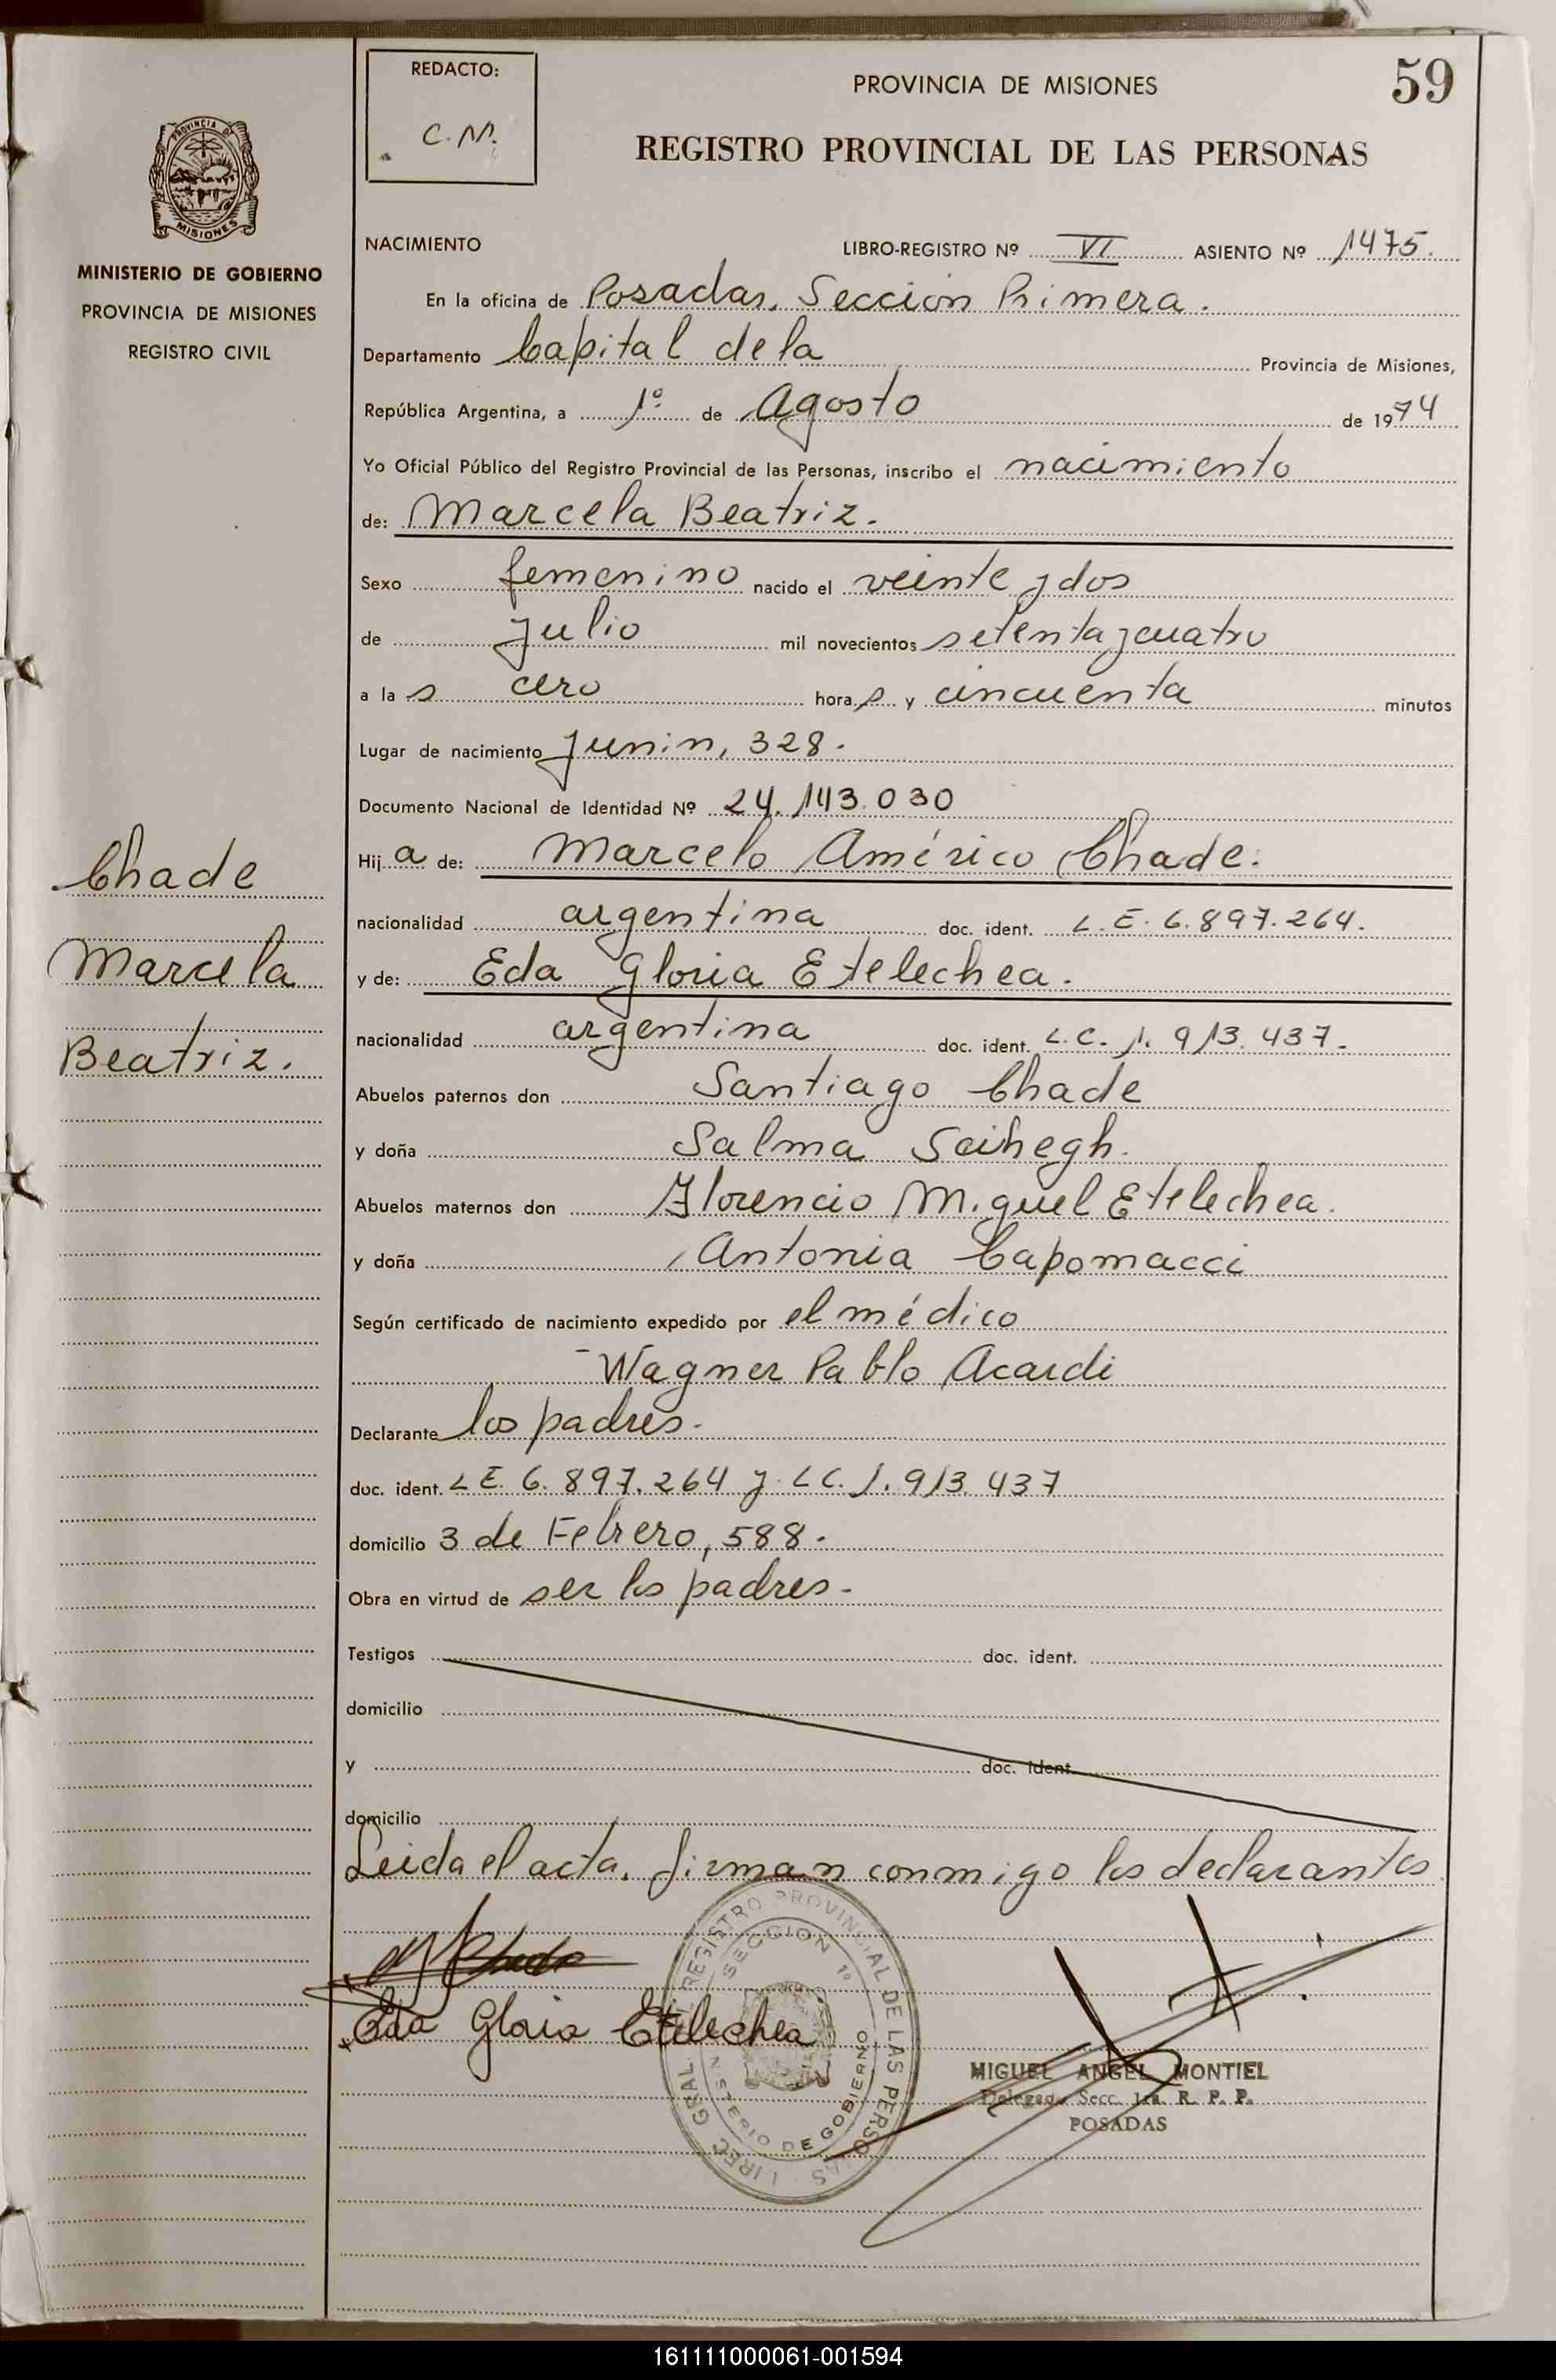 REDACTO:
C.M.
PROVINCIA DE MISIONES
59
REGISTRO PROVINCIAL DE LAS PERSONAS
PROVINCIA DE
MISIONES
MINISTERIO DE GOBIERNO
PROVINCIA DE MISIONES
REGISTRO CIVIL
NACIMIENTO
LIBRO-REGISTRO Nº VI ASIENTO Nº 1475.
En la oficina de Posadas. Sección Primera.
Departamento Capital de la Provincia de Misiones,
República Argentina, a 1º de Agosto de 1974
Yo Oficial Público del Registro Provincial de las Personas, inscribo el nacimiento
de: Marcela Beatriz.
Sexo femenino nacido el veinte y dos
de Julio mil novecientos setenta y cuatro
a la s cero hora s y cincuenta minutos
Lugar de nacimiento Junin, 328.
Documento Nacional de Identidad Nº 24.143.030
Hij a de: Marcelo Américo Chade.
nacionalidad argentina doc. ident. L.E. 6.897.264.
y de: Eda Gloria Etelechea.
nacionalidad argentina doc. ident. L.C. 1.913.437.
Abuelos paternos don Santiago Chade
y doña Salma Seihegh.
Abuelos maternos don Florencio Miguel Etelechea.
y doña Antonia Capomacci
Según certificado de nacimiento expedido por el médico
Wagner Pablo Acardi
Declarante los padres.
doc. ident. L E. 6.897.264 y L C. 1.913.437
domicilio 3 de Febrero, 588.
Obra en virtud de ser los padres.
Testigos doc. ident.
domicilio
y doc. ident.
domicilio
Leida el acta, firman conmigo los declarantes
Chade
Marcela
Beatriz.
Eda Gloria Etelechea
REGISTRO PROVINCIAL DE LAS PERSONAS
SECCION 1º
MINISTERIO DE GOBIERNO
MIGUEL ANGEL MONTIEL
Delegado Secc. 1ra R. P. P.
POSADAS
161111000061-001594